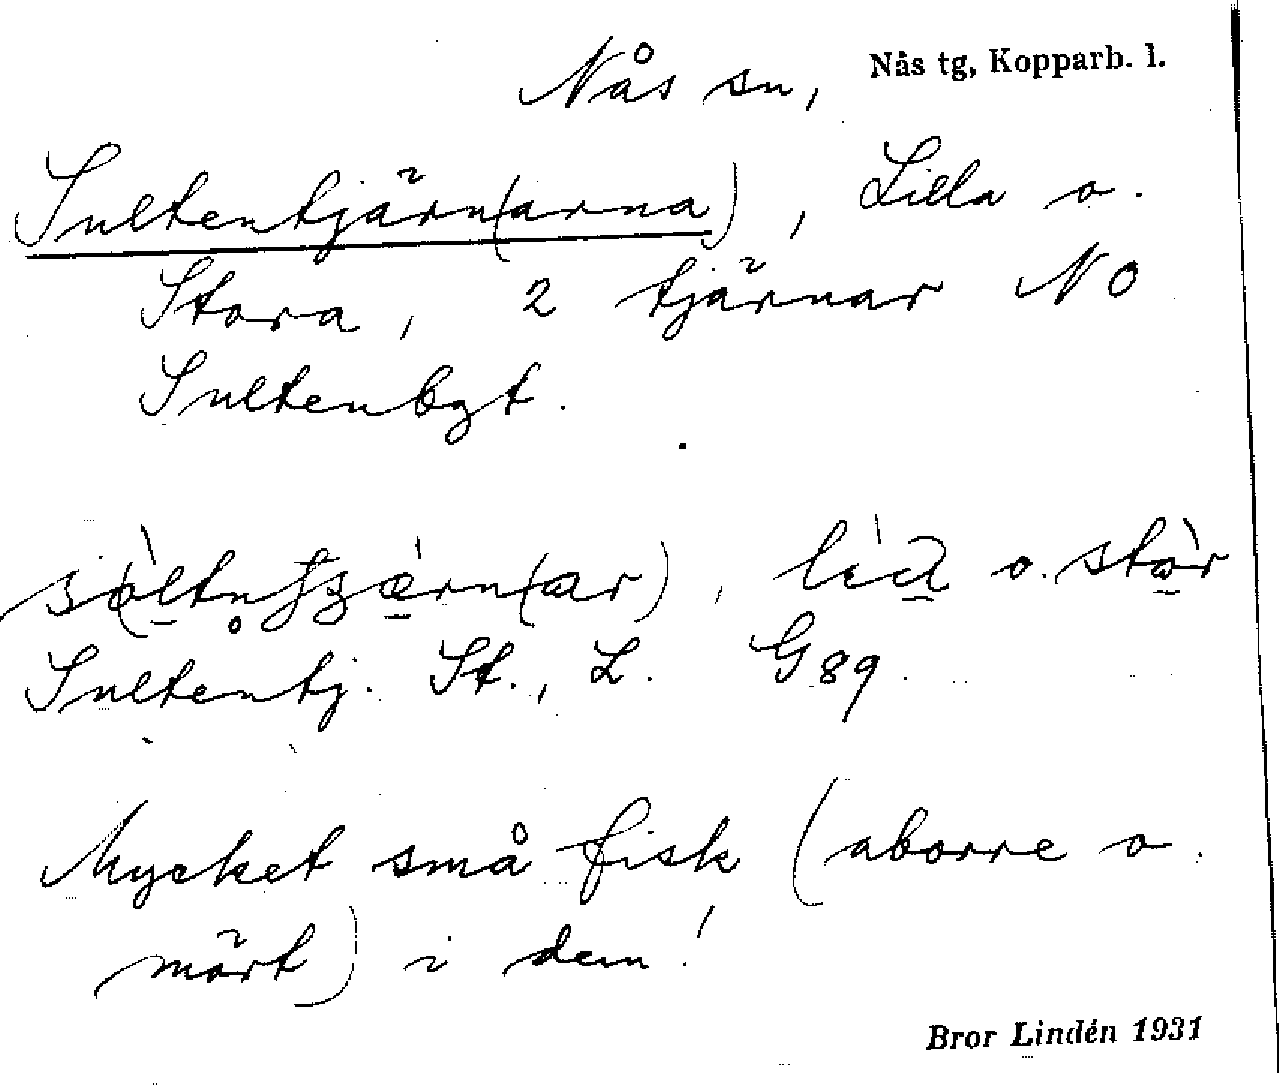 Nås sn, Nås tg, Kopparb. l.
Sultentjärn(arna), Lilla o.
Stora, 2 tjärnar NO
Sultenbgt.
o. stòr
Sultentj. St., L. G89.
Mycket små fisk (aborre o.
mört) i dem!
Bror Lindén 1931